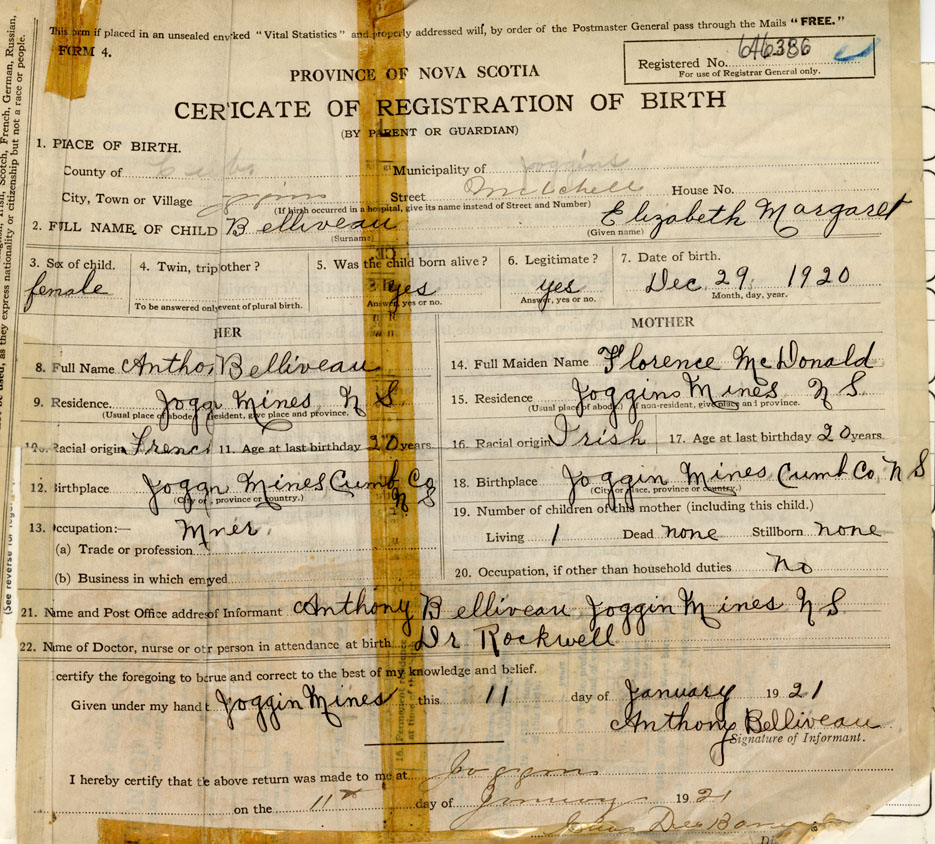 This form if placed in an unsealed env ked "Vital Statistics" and properly addressed will, by order of the Postmaster General pass through the Mails "FREE."
FORM 4.
Registered No. 646386
For use of Registrar General only.
PROVINCE OF NOVA SCOTIA
CERICATE OF REGISTRATION OF BIRTH
(BY PARENT OR GUARDIAN)
1. PIACE OF BIRTH.
County of Municipality of Joggins
City, Town or Village Street Mitchell House No.
(If birth occurred in a hospital, give its name instead of Street and Number)
2. FILL NAME OF CHILD Belliveau Elizabeth Margaret
(Surname) (Given name)
3. Sex of child. 4. Twin, trip other? 5. Was the child born alive? 6. Legitimate? 7. Date of birth.
female yes yes Dec. 29, 1920
To be answered onl event of plural birth. Answer, yes or no. Answer, yes or no. Month, day, year.
HER MOTHER
8. Full Name Antho Belliveau 14. Full Maiden Name Florence McDonald
9. Residence Jogg Mines N S 15. Residence Joggins Mines N S.
(Usual place of abode esident, give place and province. (Usual place of abode.) If non-resident, give place and province.
10. Racial origin Frenc 11. Age at last birthday 20 years. 16. Racial origin Irish 17. Age at last birthday 20 years.
12. Birthplace Joggn Mines Cumb Co N S 18. Birthplace Joggin Mines Cumb Co, N S
(City or , province or country.) (City or place, province or country.)
19. Number of children of this mother (including this child.)
13. Occupation:— Mner.
Living 1 Dead none Stillborn none
(a) Trade or profession
(b) Business in which em yed 20. Occupation, if other than household duties No
21. Name and Post Office addres of Informant Anthony Belliveau Joggin Mines N S.
22. Name of Doctor, nurse or ot r person in attendance at birth Dr Rockwell
certify the foregoing to be rue and correct to the best of my knowledge and belief.
Given under my hand t Joggin Mines this 11 day of January 1921
Anthony Belliveau
Signature of Informant.
I hereby certify that the above return was made to me at Joggins
on the 11th day of January 1921